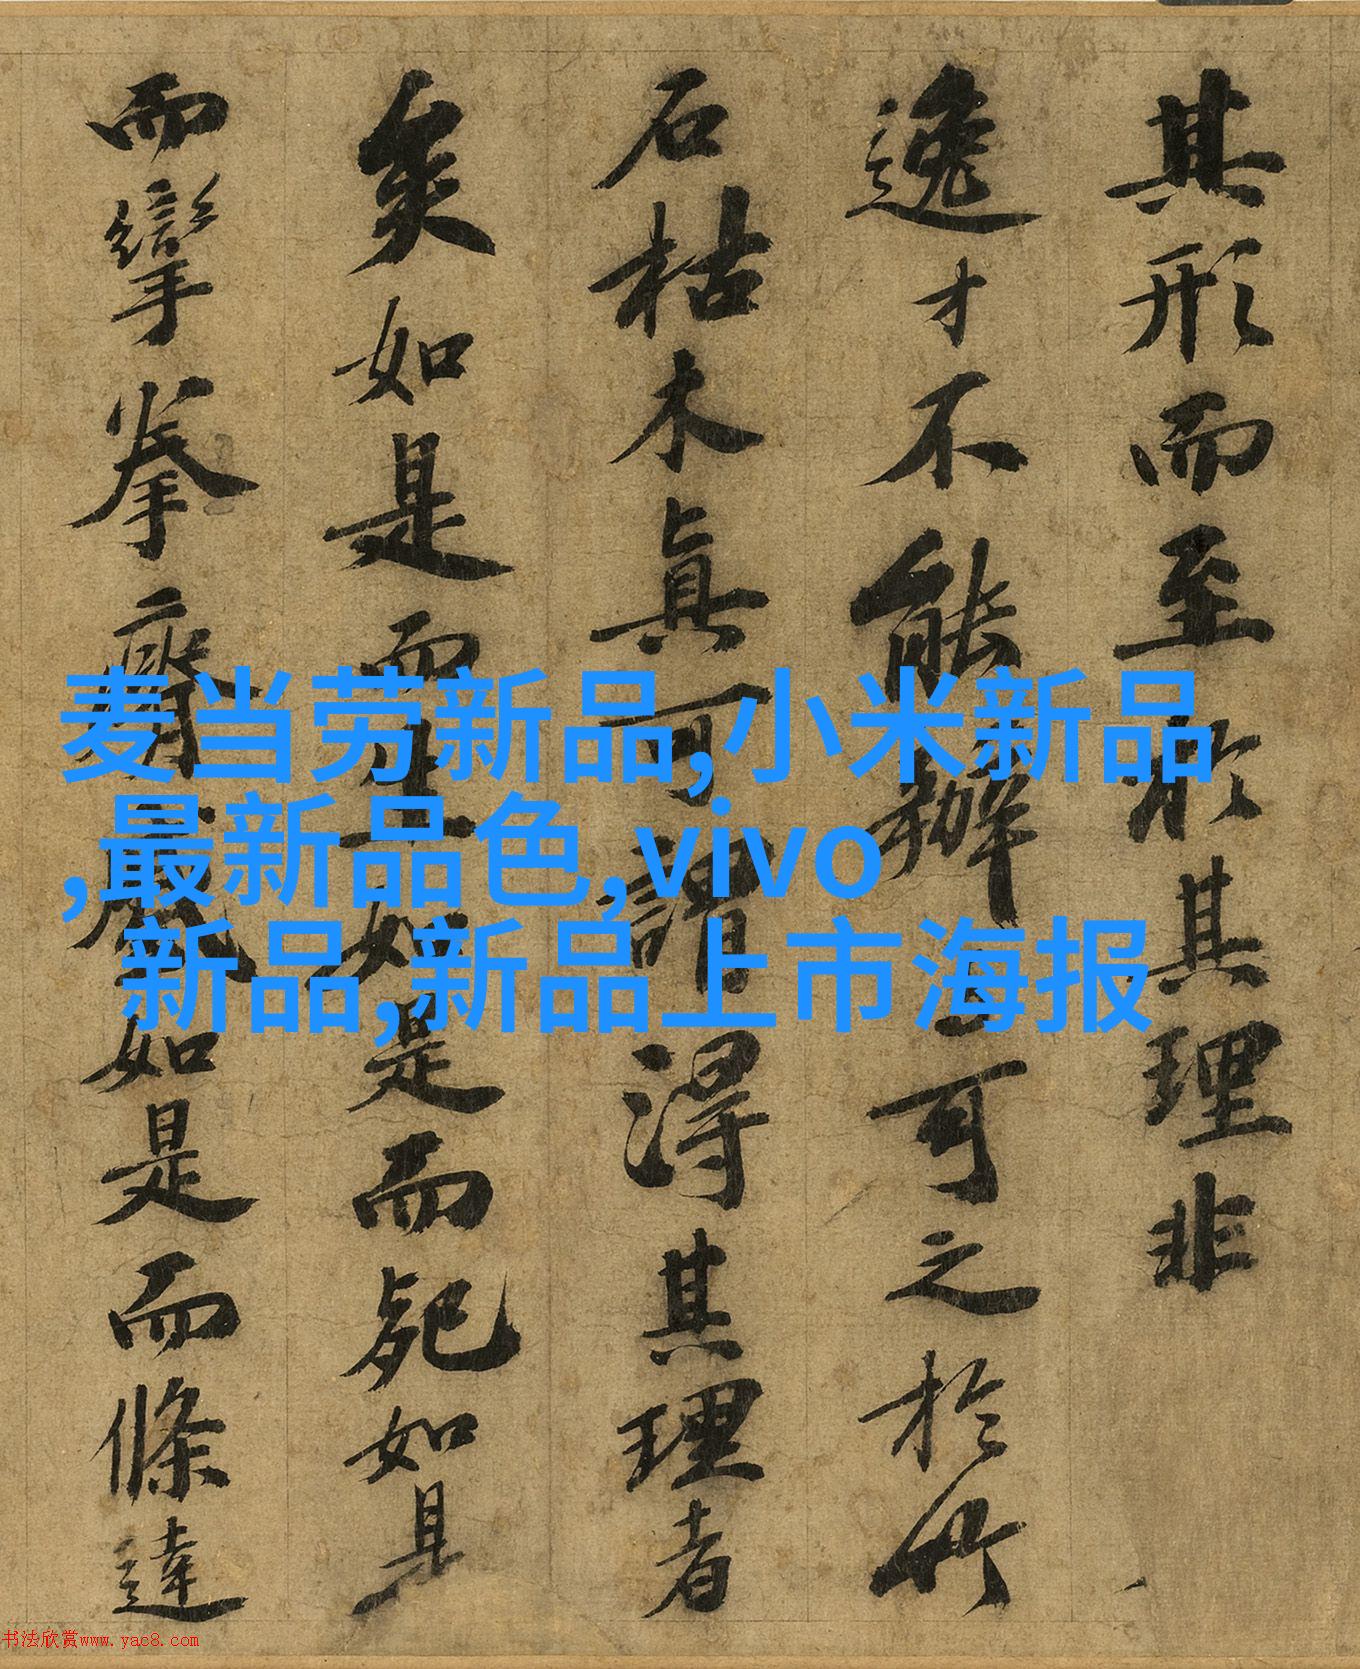 其形而至於其理非
逸才不能辦与可之於竹
石枯木真可謂得其理者
矣如是而生如是而死如是
而攣拳瘠蹙如是而條達
麦当劳新品,小米新品
,最新品色,vivo
新品,新品上市海报
书法欣赏www.yac8.com